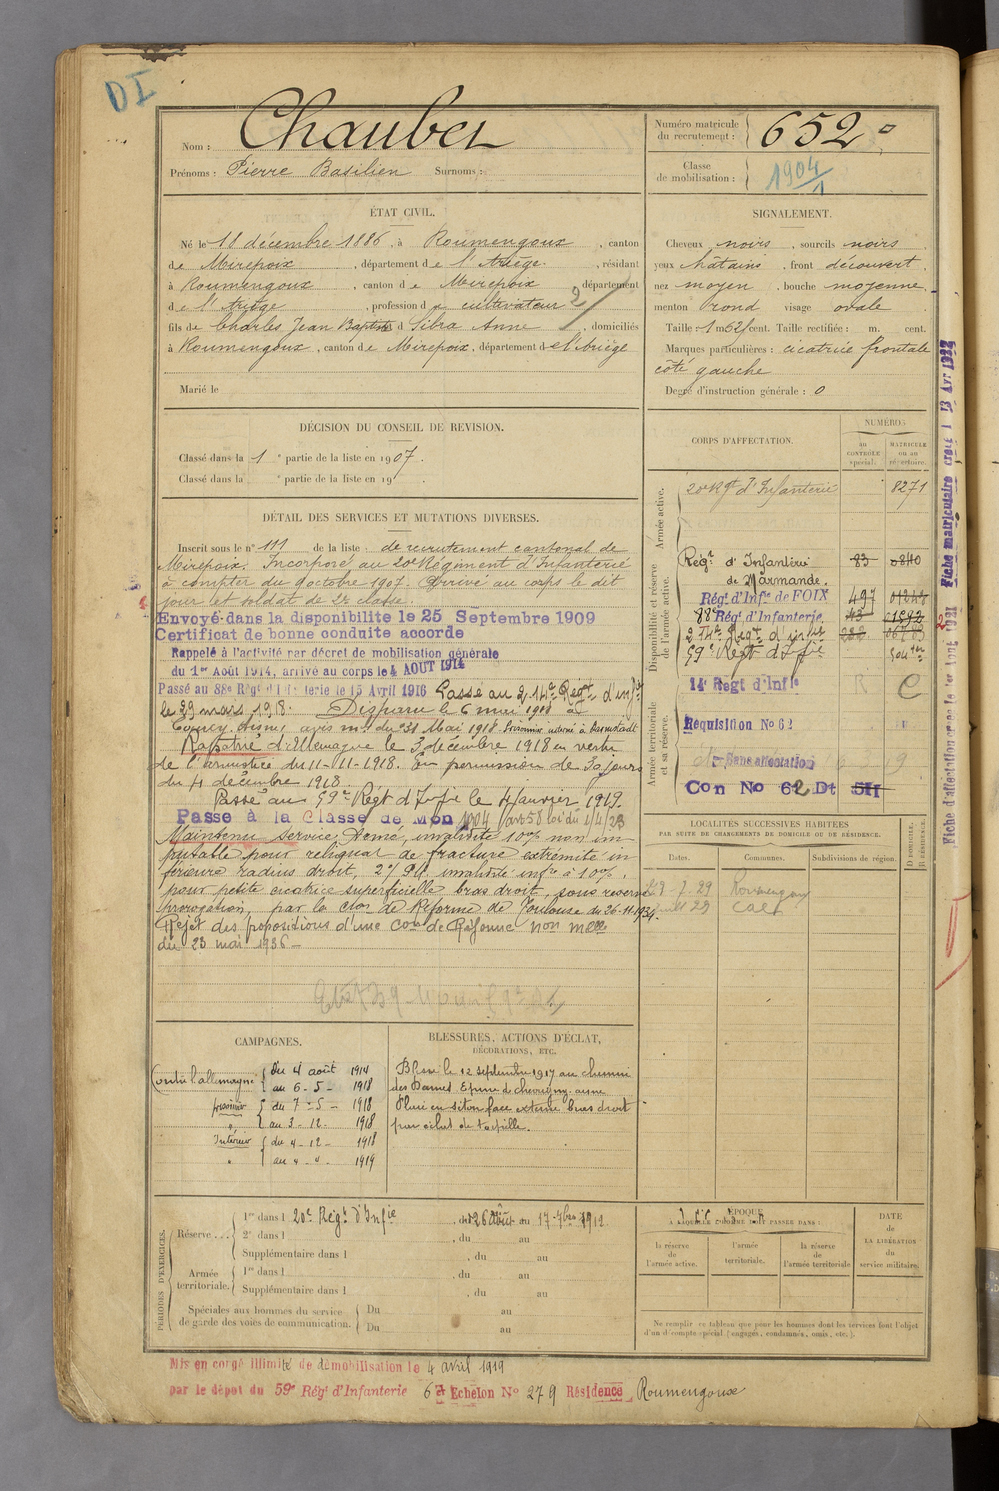 DI
Nom : Chaubet
Prénoms : Pierre Basilien Surnoms :
Numéro matricule du recrutement : 652
Classe de mobilisation : 1904/1
ÉTAT CIVIL.
Né le 18 décembre 1886, à Roumengoux, canton
de Mirepoix, département de l'Ariège, résidant
à Roumengoux, canton de Mirepoix département
de l'Ariège, profession de cultivateur 2/
fils de Charles Jean Baptiste et d Sibra Anne, domiciliés
à Roumengoux, canton de Mirepoix, département de l'Ariège
Marié le
SIGNALEMENT.
Cheveux noirs, sourcils noirs
yeux châtains, front découvert,
nez moyen, bouche moyenne,
menton rond visage ovale
Taille : 1 m 52 cent. Taille rectifiée : m. cent.
Marques particulières : cicatrice frontale
côté gauche
Degré d'instruction générale : 0
DÉCISION DU CONSEIL DE REVISION.
Classé dans la 1e partie de la liste en 1907.
Classé dans la e partie de la liste en 19
DÉTAIL DES SERVICES ET MUTATIONS DIVERSES.
Inscrit sous le n° 111 de la liste de recrutement cantonal de
Mirepoix. Incorporé au 20e Régiment d'Infanterie
à compter du 9 octobre 1907. Arrivé au corps le dit
jour et soldat de 2e classe.
Envoyé dans la disponibilité le 25 Septembre 1909
Certificat de bonne conduite accordé
Rappelé à l'activité par décret de mobilisation générale
du 1er Août 1914, arrivé au corps le 4 AOUT 1914
Passé au 88e Régt d'Infanterie le 15 Avril 1916 Passé au 214e Régt d'infie
le 29 mars 1918. Disparu le 6 mai 1918 à
Coucy, Aisne, avis du 31 Mai 1918. Prisonnier interné à Darmstadt
Rapatrié d'Allemagne le 3 décembre 1918 en vertu
de l'armistice du 11-11-1918. En permission de 30 jours
du 4 décembre 1918.
Passé au 59e Régt d'Infie le 4 Janvier 1919.
Passé à la Classe de Mon 1904 (art 58 loi du 1/4/23
Maintenu Service Armé, invalidité 10% non im-
putable pour reliquat de fracture extrémité in-
férieure radius droit, 2°/ invalidité infre à 10%,
pour petite cicatrice superficielle bras droit, sous réserve
prorogation, par la Con de Réforme de Toulouse du 26-11-1934.
Rejet des propositions d'une Con de Réforme non
du 23 mai 1936 -
CORPS D'AFFECTATION.
NUMÉROS
au CONTRÔLE spécial.
MATRICULE ou au répertoire.
Armée active.
20e Rgt d'Infanterie 8271
Disponibilité et réserve de l'armée active.
Régt d'Infanterie 83 0840
de Marmande.
Régt d'Infie de FOIX 497
88e Régt d'Infanterie 43
214e Régt d'infie
59e Régt d'Infie
Armée territoriale et sa réserve.
14e Regt d'Infie R
Réquisition No 62
Sans affectation
Con No 62 Dt 5H
Fiche d'affectation créée le 1er Août 1931 Fiche matriculaire créée l 13 Avr 1932
LOCALITÉS SUCCESSIVES HABITÉES
PAR SUITE DE CHANGEMENTS DE DOMICILE OU DE RÉSIDENCE.
Dates. Communes. Subdivisions de région. D DOMICILE. R RÉSIDENCE.
-7-29 Roumengoux
CAMPAGNES.
Contre l'allemagne { du 4 août 1914
au 6-5- 1918
prisonnier { du 7-5- 1918
" au 3-12- 1918
Intérieur { du 4-12- 1918
" au 4-4- 1919
BLESSURES, ACTIONS D'ÉCLAT,
DÉCORATIONS, ETC.
Blessé le 12 septembre 1917 au chemin
des Dames. Epine de chevrigny. aisne
Plaie en séton face externe bras droit
par éclat de torpille.
PÉRIODES D'EXERCICES.
Réserve... 1re dans l 20e Régt d'Infie, du 26 Août au 17-7bre 1912
2e dans l , du au
Supplémentaire dans l , du au
Armée territoriale. 1re dans l , du au
Supplémentaire dans l , du au
Spéciales aux hommes du service de garde des voies de communication. Du au
Du au
ÉPOQUE
À LAQUELLE L'HOMME DOIT PASSER DANS :
la réserve de l'armée active.
l'armée territoriale.
la réserve de l'armée territoriale
DATE de LA LIBÉRATION du service militaire.
Ne remplir ce tableau que pour les hommes dont les services font l'objet
d'un décompte spécial (engagés, condamnés, omis, etc.).
Mis en congé illimité de démobilisation le 4 avril 1919
par le dépot du 59e Régt d'Infanterie 6e Echelon No 279 Résidence Roumengoux